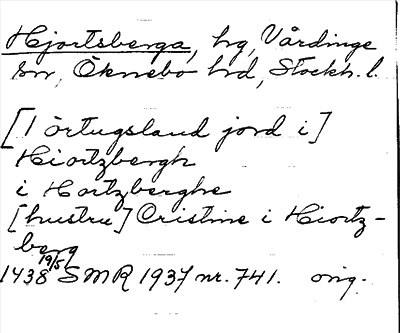 Hjortsberga, hg, Vårdinge
sn, Öknebo hd, Stockh. l.
[1 örtugsland jord i]
Hiortzbergh
i Hortzberghe
[hustru] Cristine i Hiortz-
berg
1438 19/5 SMR 1937 nr. 741. orig.